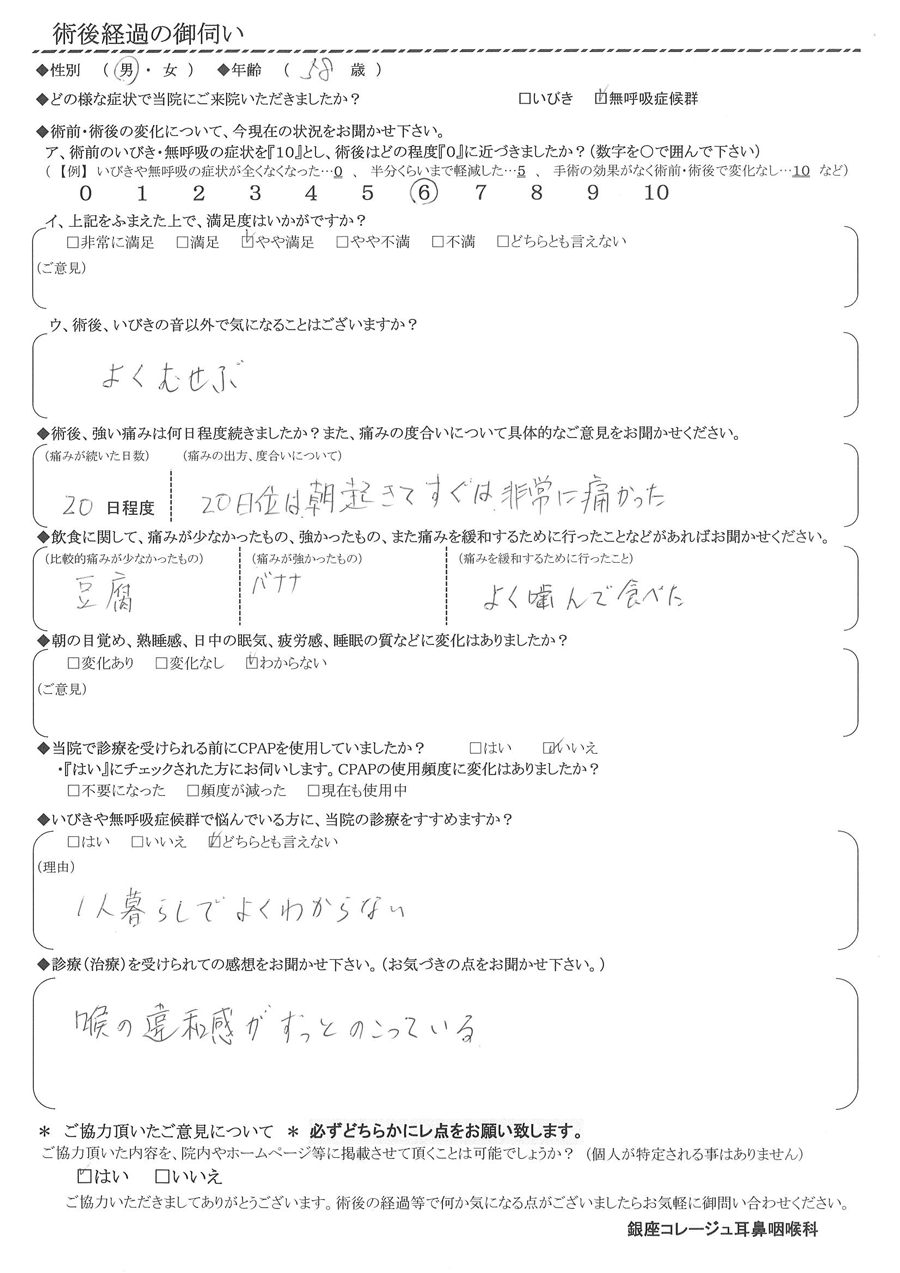 術後経過の御伺い
◆性別 （ 男 ・ 女 ） ◆年齢 （ 58 歳 ）
◆どの様な症状で当院にご来院いただきましたか？ □いびき ☑無呼吸症候群
◆術前・術後の変化について、今現在の状況をお聞かせ下さい。
ア、術前のいびき・無呼吸の症状を『10』とし、術後はどの程度『0』に近づきましたか？（数字を〇で囲んで下さい）
（【例】 いびきや無呼吸の症状が全くなくなった…0 、 半分くらいまで軽減した…5 、 手術の効果がなく術前・術後で変化なし…10 など）
0 1 2 3 4 5 6 7 8 9 10
イ、上記をふまえた上で、満足度はいかがですか？
□非常に満足 □満足 ☑やや満足 □やや不満 □不満 □どちらとも言えない
（ご意見）
ウ、術後、いびきの音以外で気になることはございますか？
よくむせぶ
◆術後、強い痛みは何日程度続きましたか？また、痛みの度合いについて具体的なご意見をお聞かせください。
（痛みが続いた日数） （痛みの出方、度合いについて）
20 日程度 20日位は、朝起きてすぐは、非常に痛かった
◆飲食に関して、痛みが少なかったもの、強かったもの、また痛みを緩和するために行ったことなどがあればお聞かせください。
（比較的痛みが少なかったもの） （痛みが強かったもの） （痛みを緩和するために行ったこと）
豆腐 バナナ よく噛んで食べた
◆朝の目覚め、熟睡感、日中の眠気、疲労感、睡眠の質などに変化はありましたか？
□変化あり □変化なし ☑わからない
（ご意見）
◆当院で診療を受けられる前にCPAPを使用していましたか？ □はい ☑いいえ
・『はい』にチェックされた方にお伺いします。CPAPの使用頻度に変化はありましたか？
□不要になった □頻度が減った □現在も使用中
◆いびきや無呼吸症候群で悩んでいる方に、当院の診療をすすめますか？
□はい □いいえ ☑どちらとも言えない
（理由）
1人暮らしでよくわからない
◆診療（治療）を受けられての感想をお聞かせ下さい。（お気づきの点をお聞かせ下さい。）
喉の違和感がずっとのこっている
＊ ご協力頂いたご意見について ＊ 必ずどちらかにレ点をお願い致します。
ご協力頂いた内容を、院内やホームページ等に掲載させて頂くことは可能でしょうか？ （個人が特定される事はありません）
☑はい □いいえ
ご協力いただきましてありがとうございます。術後の経過等で何か気になる点がございましたらお気軽に御問い合わせください。
銀座コレージュ耳鼻咽喉科